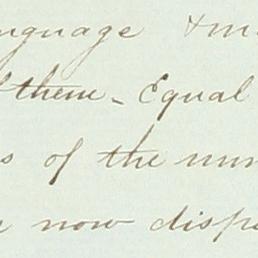 nguage & m
f them - Equal
s of the num
now disp